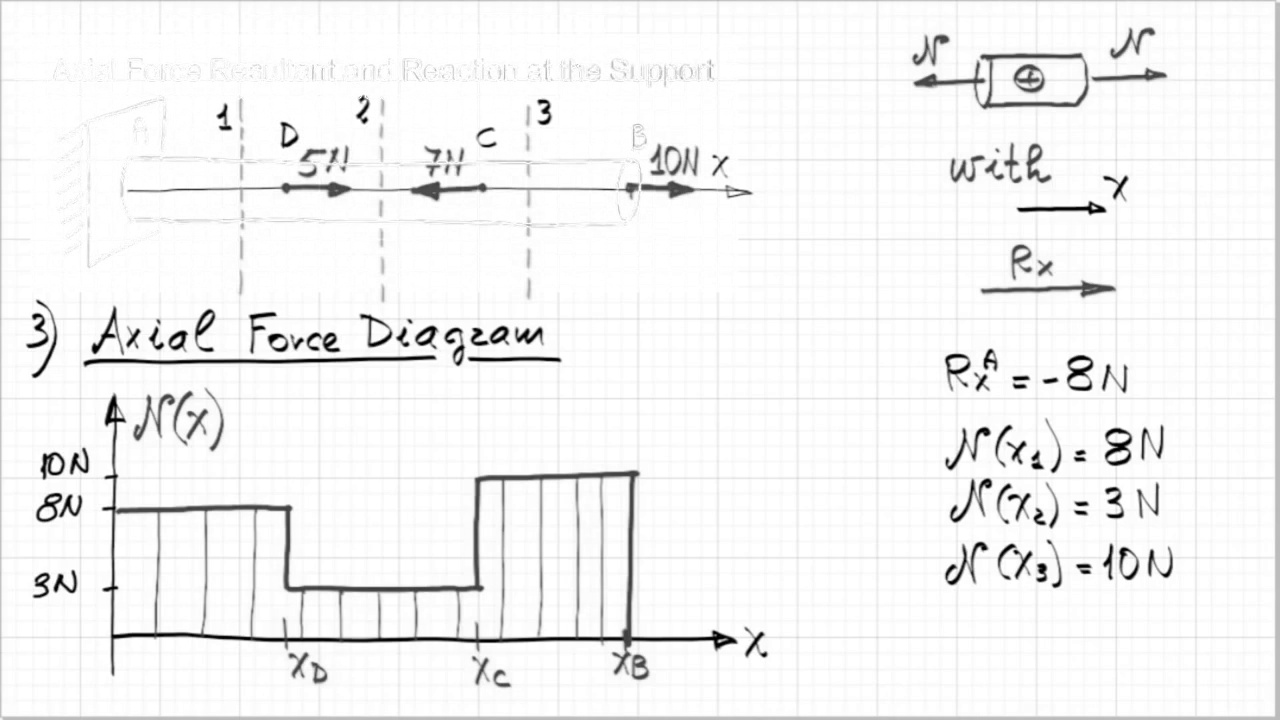 Axial Force Resultant and Reaction at the Support
A 1 D 2 C 3 B
5N 7N 10N x
3) Axial Force Diagram
N(x)
10N
8N
3N
xD xC xB x
N N
+
with
x
Rx
RxA = -8N
N(x1) = 8N
N(x2) = 3N
N(x3) = 10N